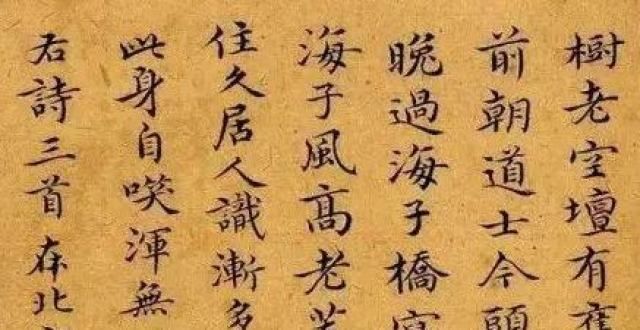 樹老空壇有
前朝道士今頭
晚過海子橋
海子風高老
住久居人識漸多
此身自笑渾無
右詩三首在北